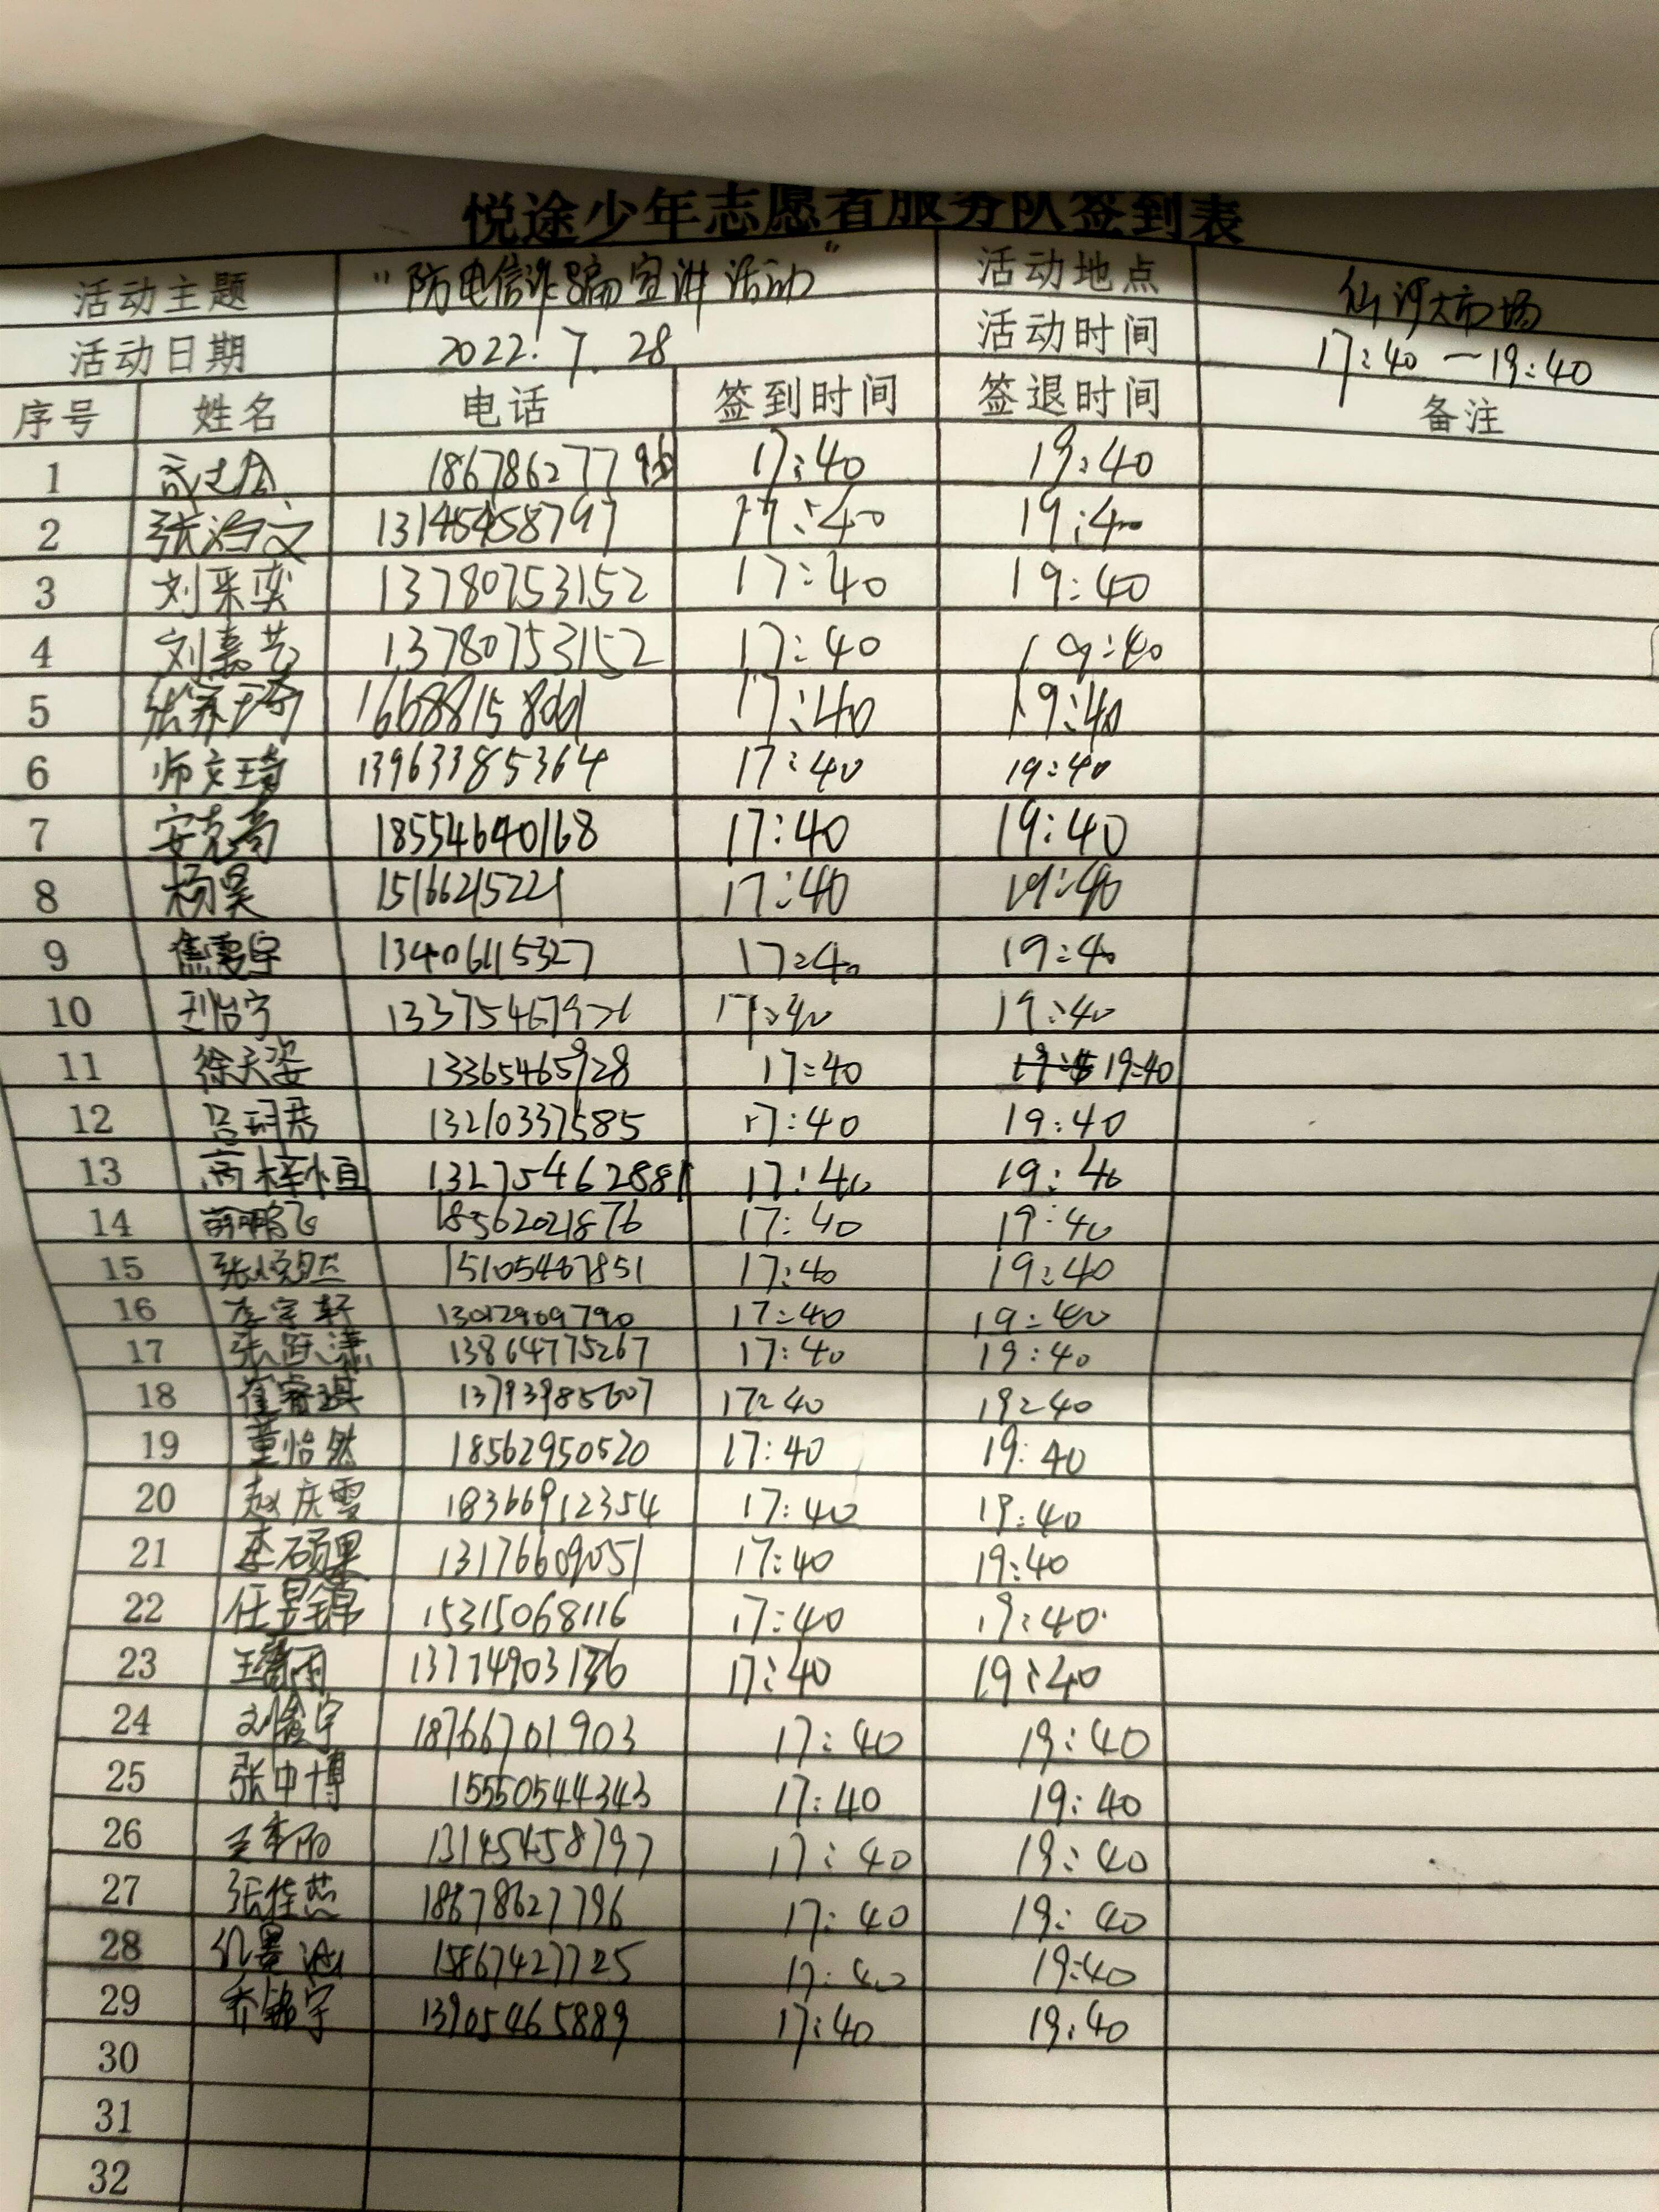 悦途少年志愿者服务队签到表
活动主题 "防电信诈骗宣讲活动" 活动地点 仙河大市场
活动日期 2022.7.28 活动时间 17:40—19:40
序号 姓名 电话 签到时间 签退时间 备注
1 17:40 19:40
2 张 13145458797 17:40 19:40
3 刘采奕 13780753152 17:40 19:40
4 刘嘉艺 13780753152 17:40 19:40
5 17:40 19:40
6 师文琦 13963385364 17:40 19:40
7 安克 18554640168 17:40 19:40
8 杨昊 15166215221 17:40 19:40
9 焦雯宇 13406115327 17:40 19:40
10 王怡宁 17:40 19:40
11 徐天姿 13365465928 17:40 19:40
12 吕玥君 13210337585 17:40 19:40
13 高梓恒 13275462881 17:40 19:40
14 鹏飞 18562021876 17:40 19:40
15 张悦然 15105467851 17:40 19:40
16 李宇轩 13012909790 17:40 19:40
17 张跃潇 13864775267 17:40 19:40
18 崔睿琪 13793985607 17:40 19:40
19 董怡然 18562950520 17:40 19:40
20 赵庆雯 18366912354 17:40 19:40
21 李硕果 13176609051 17:40 19:40
22 任昱锦 15315068116 17:40 19:40
23 王 17:40 19:40
24 刘 宇 18766701903 17:40 19:40
25 张中博 15550544343 17:40 19:40
26 13145458797 17:40 19:40
27 张佳 18678627796 17:40 19:40
28 15867427725 17:40 19:40
29 乔 宇 13905465889 17:40 19:40
30
31
32